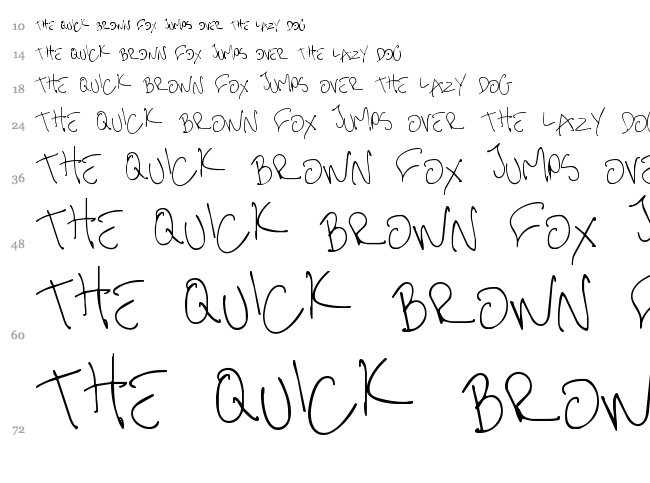 10 THE QUICK BROWN FOX JUMPS OVER THE LAZY DOG
14 THE QUICK BROWN FOX JUMPS OVER THE LAZY DOG
18 THE QUICK BROWN FOX JUMPS OVER THE LAZY DOG
24 THE QUICK BROWN FOX JUMPS OVER THE LAZY DO
36 THE QUICK BROWN FOX JUMPS OVE
48 THE QUICK BROWN FOX J
60 THE QUICK BROWN
72 THE QUICK BROW